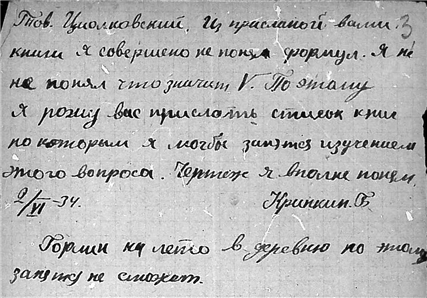 Тов. Циолковский. Из присланой вами 3
книги я совершено не понял формул. Я не
не понял что значит V. Поэтому
я рошу вас прислать список книг
по которым я могбы занятся изучением
этого вопроса. Чертеж я вполне понял.
9/VI -34. Кринкин. Б.
Горшин на лето в деревню по этому
заняту не сможет.